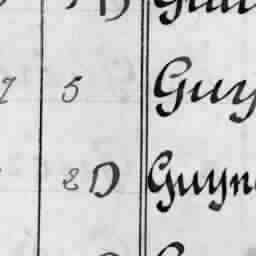 7 5 Guy
2 D Guyn